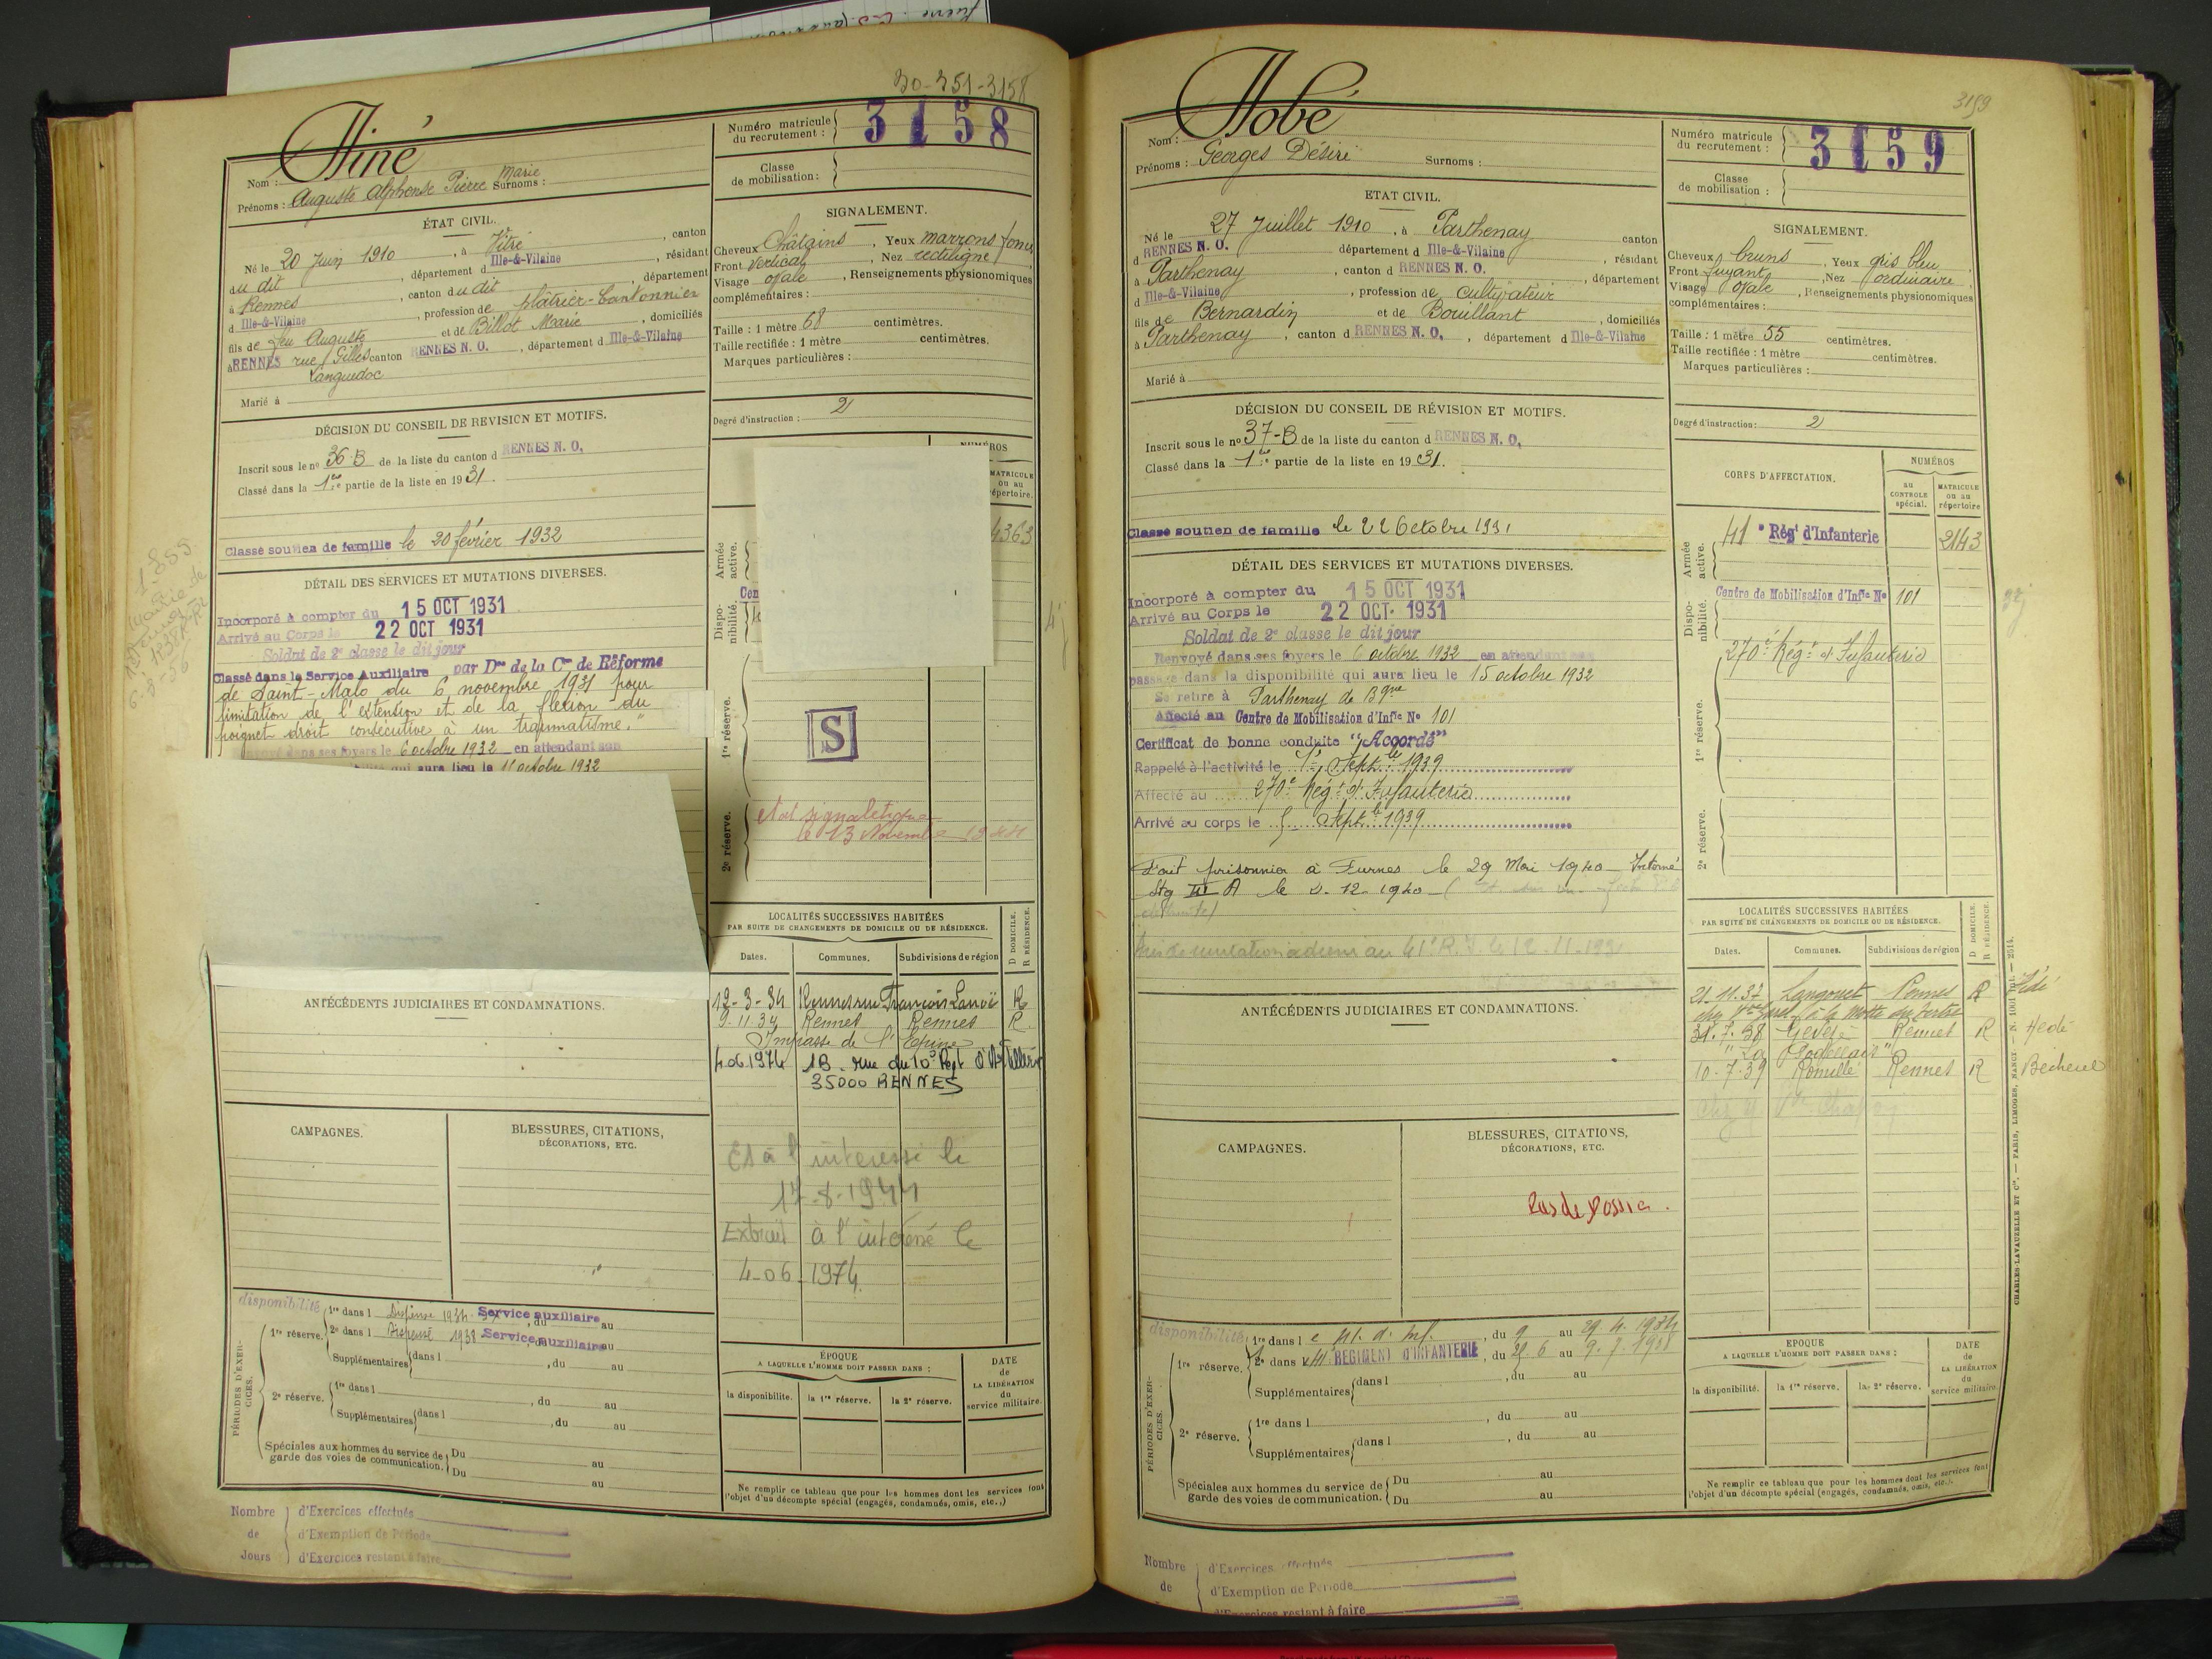 30-351-3158
Nom : Tiné
Prénoms : Auguste Alphonse Pierre Marie Surnoms :
Numéro matricule du recrutement : 3158
Classe de mobilisation :
ÉTAT CIVIL.
Né le 20 Juin 1910, à Vitré, canton
du dit, département d Ille-&-Vilaine, résidant
à Rennes, canton du dit, département
d Ille-&-Vilaine, profession de plâtrier-Cantonnier
fils de feu Auguste et de Billot Marie, domiciliés
à RENNES rue Gilles canton RENNES N. O., département d Ille-&-Vilaine
Languedoc
Marié à
SIGNALEMENT.
Cheveux Châtains, Yeux marrons foncé
Front vertical, Nez rectiligne
Visage ovale, Renseignements physionomiques
complémentaires :
Taille : 1 mètre 68 centimètres.
Taille rectifiée : 1 mètre centimètres.
Marques particulières :
Degré d'instruction : 2
DÉCISION DU CONSEIL DE REVISION ET MOTIFS.
Inscrit sous le nº 36-B de la liste du canton d RENNES N. O.
Classé dans la 1re partie de la liste en 1931.
Classé soutien de famille le 20 février 1932
DÉTAIL DES SERVICES ET MUTATIONS DIVERSES.
Incorporé à compter du 15 OCT 1931
Arrivé au Corps le 22 OCT 1931
Soldat de 2e classe le dit jour
Classé dans le Service Auxiliaire par Don de la Con de Réforme
de Saint-Malo du 6 novembre 1931 pour
limitation de l'extension et de la flexion du
poignet droit consécutive à un traumatisme."
dans ses foyers le 6 octobre 1932 en attendant son
qui aura lieu le 11 octobre 1932
NUMÉROS
MATRICULE
ou au
répertoire.
4363
Armée active.
Dispo-nibilité.
1re réserve.
S
2e réserve.
Etat signalétique
le 13 Novembre 1944
ANTÉCÉDENTS JUDICIAIRES ET CONDAMNATIONS.
LOCALITÉS SUCCESSIVES HABITÉES
PAR SUITE DE CHANGEMENTS DE DOMICILE OU DE RÉSIDENCE.
D DOMICILE.
R RÉSIDENCE.
Dates. Communes. Subdivisions de région
12-3-34 Rennes rue François Lanoë R
9.11.34 Rennes Rennes R.
Impasse de l'Epine
4.06.1974 1B. rue du 10e Régt d'Artillerie
35000 RENNES
ES à l'intéressé le
17-8-1944
Extrait à l'intéressé le
4-06-1974
CAMPAGNES.
BLESSURES, CITATIONS,
DÉCORATIONS, ETC.
disponibilité
PÉRIODES D'EXER-CICES.
1re réserve. 1re dans l Dispense 1934 Service auxiliaire, du au
2e dans l Dispensé 1938 Service auxiliaire au
Supplémentaires dans l, du au
2e réserve. 1re dans l, du au
Supplémentaires dans l, du au
Spéciales aux hommes du service de garde des voies de communication. Du au
Du au
ÉPOQUE
A LAQUELLE L'HOMME DOIT PASSER DANS :
la disponibilité. la 1re réserve. la 2e réserve.
DATE
de
LA LIBÉRATION
du
service militaire.
Ne remplir ce tableau que pour les hommes dont les services font
l'objet d'un décompte spécial (engagés, condamnés, omis, etc..)
Nombre de Jours
d'Exercices effectués
d'Exemption de Période
d'Exercices restant à faire
3159
Nom : Tobé
Prénoms : Georges Désiré Surnoms :
Numéro matricule du recrutement : 3159
Classe de mobilisation :
ETAT CIVIL.
Né le 27 Juillet 1910, à Parthenay canton
d RENNES N. O. département d Ille-&-Vilaine, résidant
à Parthenay, canton d RENNES N. O., département
d Ille-&-Vilaine, profession de cultivateur
fils de Bernardin et de Bouillant, domiciliés
à Parthenay, canton d RENNES N. O., département d Ille-&-Vilaine
Marié à
SIGNALEMENT.
Cheveux bruns, Yeux gris bleu
Front fuyant, Nez ordinaire
Visage ovale, Renseignements physionomiques
complémentaires :
Taille : 1 mètre 55 centimètres.
Taille rectifiée : 1 mètre centimètres.
Marques particulières :
Degré d'instruction : 2
DÉCISION DU CONSEIL DE RÉVISION ET MOTIFS.
Inscrit sous le nº 37-B de la liste du canton d RENNES N. O.
Classé dans la 1re partie de la liste en 1931.
Classé soutien de famille le 22 Octobre 1931
DÉTAIL DES SERVICES ET MUTATIONS DIVERSES.
Incorporé à compter du 15 OCT 1931
Arrivé au Corps le 22 OCT. 1931
Soldat de 2e classe le dit jour
Renvoyé dans ses foyers le 6 octobre 1932 en attendant son
passage dans la disponibilité qui aura lieu le 15 octobre 1932
Se retire à Parthenay de Bgne
Affecté au Centre de Mobilisation d'Infie No 101
Certificat de bonne conduite "Accordé"
Rappelé à l'activité le 1er Septbre 1939
Affecté au 270e Régt d'Infanterie
Arrivé au corps le 5 Septbre 1939
Fait prisonnier à Furnes le 29 Mai 1940 - Interné
Stg III A le 2.12.1940
CORPS D'AFFECTATION.
NUMÉROS
au
CONTROLE
spécial.
MATRICULE
ou au
répertoire
Armée active. 41e Régt d'Infanterie 2143
Dispo-nibilité. Centre de Mobilisation d'Infie No 101
270e Régt d'Infanterie
1re réserve.
2e réserve.
ANTÉCÉDENTS JUDICIAIRES ET CONDAMNATIONS.
LOCALITÉS SUCCESSIVES HABITÉES
PAR SUITE DE CHANGEMENTS DE DOMICILE OU DE RÉSIDENCE.
D DOMICILE.
R RÉSIDENCE.
Dates. Communes. Subdivisions de région
21.11.37 Langouet Rennes R Hédé
à la Motte du Tertre
31.7.38 Gevezé Rennes R Hédé
10-7-39 Romillé Rennes R Bécherel
CAMPAGNES.
BLESSURES, CITATIONS,
DÉCORATIONS, ETC.
Pas de Dossier.
disponibilité
PÉRIODES D'EXER-CICES.
1re réserve. 1re dans l e 41. d'Inf., du 9 au 29.4.1934
2e dans l 41 REGIMENT D'INFANTERIE, du 21.6 au 9.7.1938
Supplémentaires dans l, du au
2e réserve. 1re dans l, du au
Supplémentaires dans l, du au
Spéciales aux hommes du service de garde des voies de communication. Du au
Du au
EPOQUE
A LAQUELLE L'HOMME DOIT PASSER DANS :
la disponibilité. la 1re réserve. la 2e réserve.
DATE
de
LA LIBÉRATION
du
service militaire.
Ne remplir ce tableau que pour les hommes dont les services font
l'objet d'un décompte spécial (engagés, condamnés, omis, etc..).
CHARLES-LAVAUZELLE ET Cie. — PARIS, LIMOGES, NANCY
Nombre de
d'Exercices effectués
d'Exemption de Période
d'Exercices restant à faire